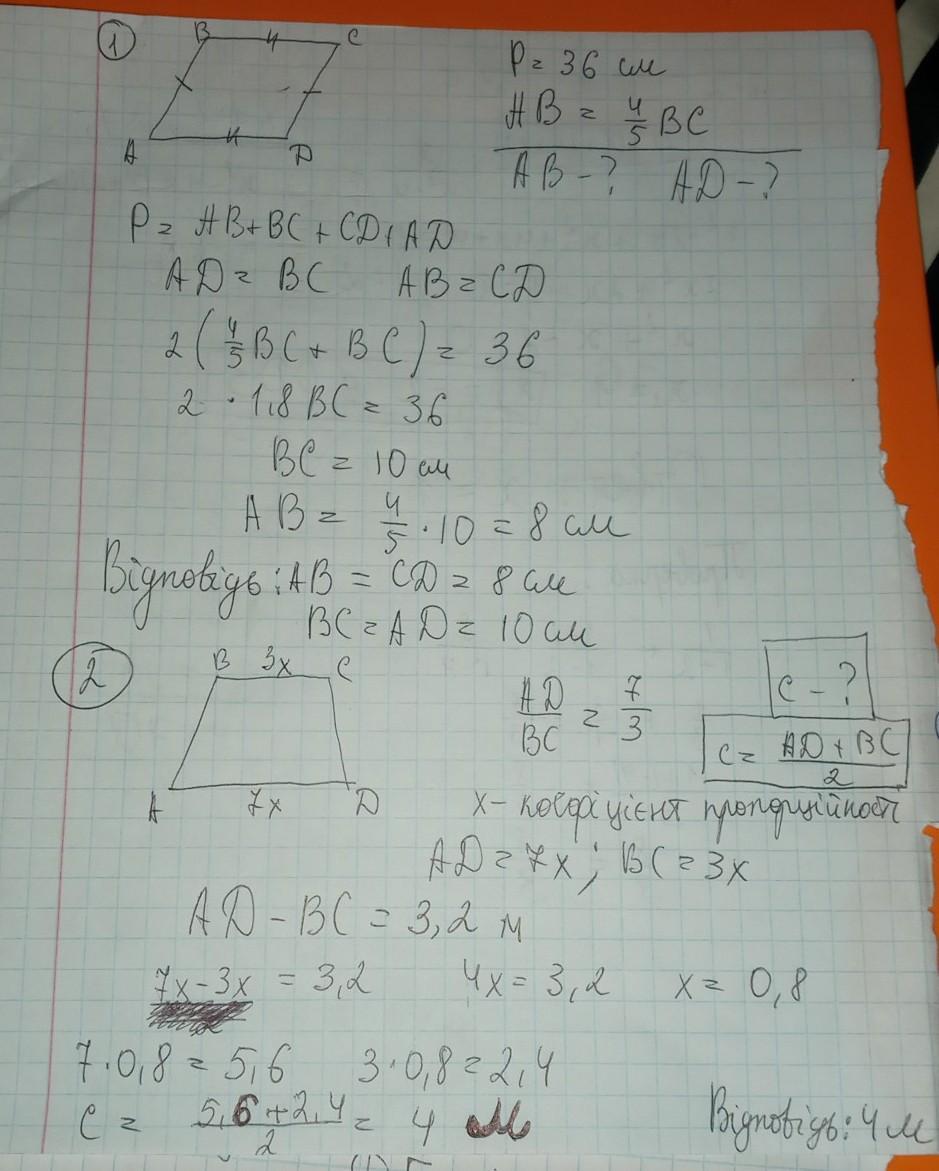 1
B C
A D
P = 36 см
AB = 4/5 BC
AB - ? AD - ?
P = AB + BC + CD + AD
AD = BC AB = CD
2(4/5 BC + BC) = 36
2 · 1,8 BC = 36
BC = 10 см
AB = 4/5 · 10 = 8 см
Відповідь: AB = CD = 8 см
BC = AD = 10 см
2
B 3x C
A 7x D
AD/BC = 7/3
c - ?
c = (AD + BC)/2
x - коефіцієнт пропорційності
AD = 7x; BC = 3x
AD - BC = 3,2 м
7x - 3x = 3,2 4x = 3,2 x = 0,8
7 · 0,8 = 5,6 3 · 0,8 = 2,4
c = (5,6 + 2,4)/2 = 4 м
Відповідь: 4 м